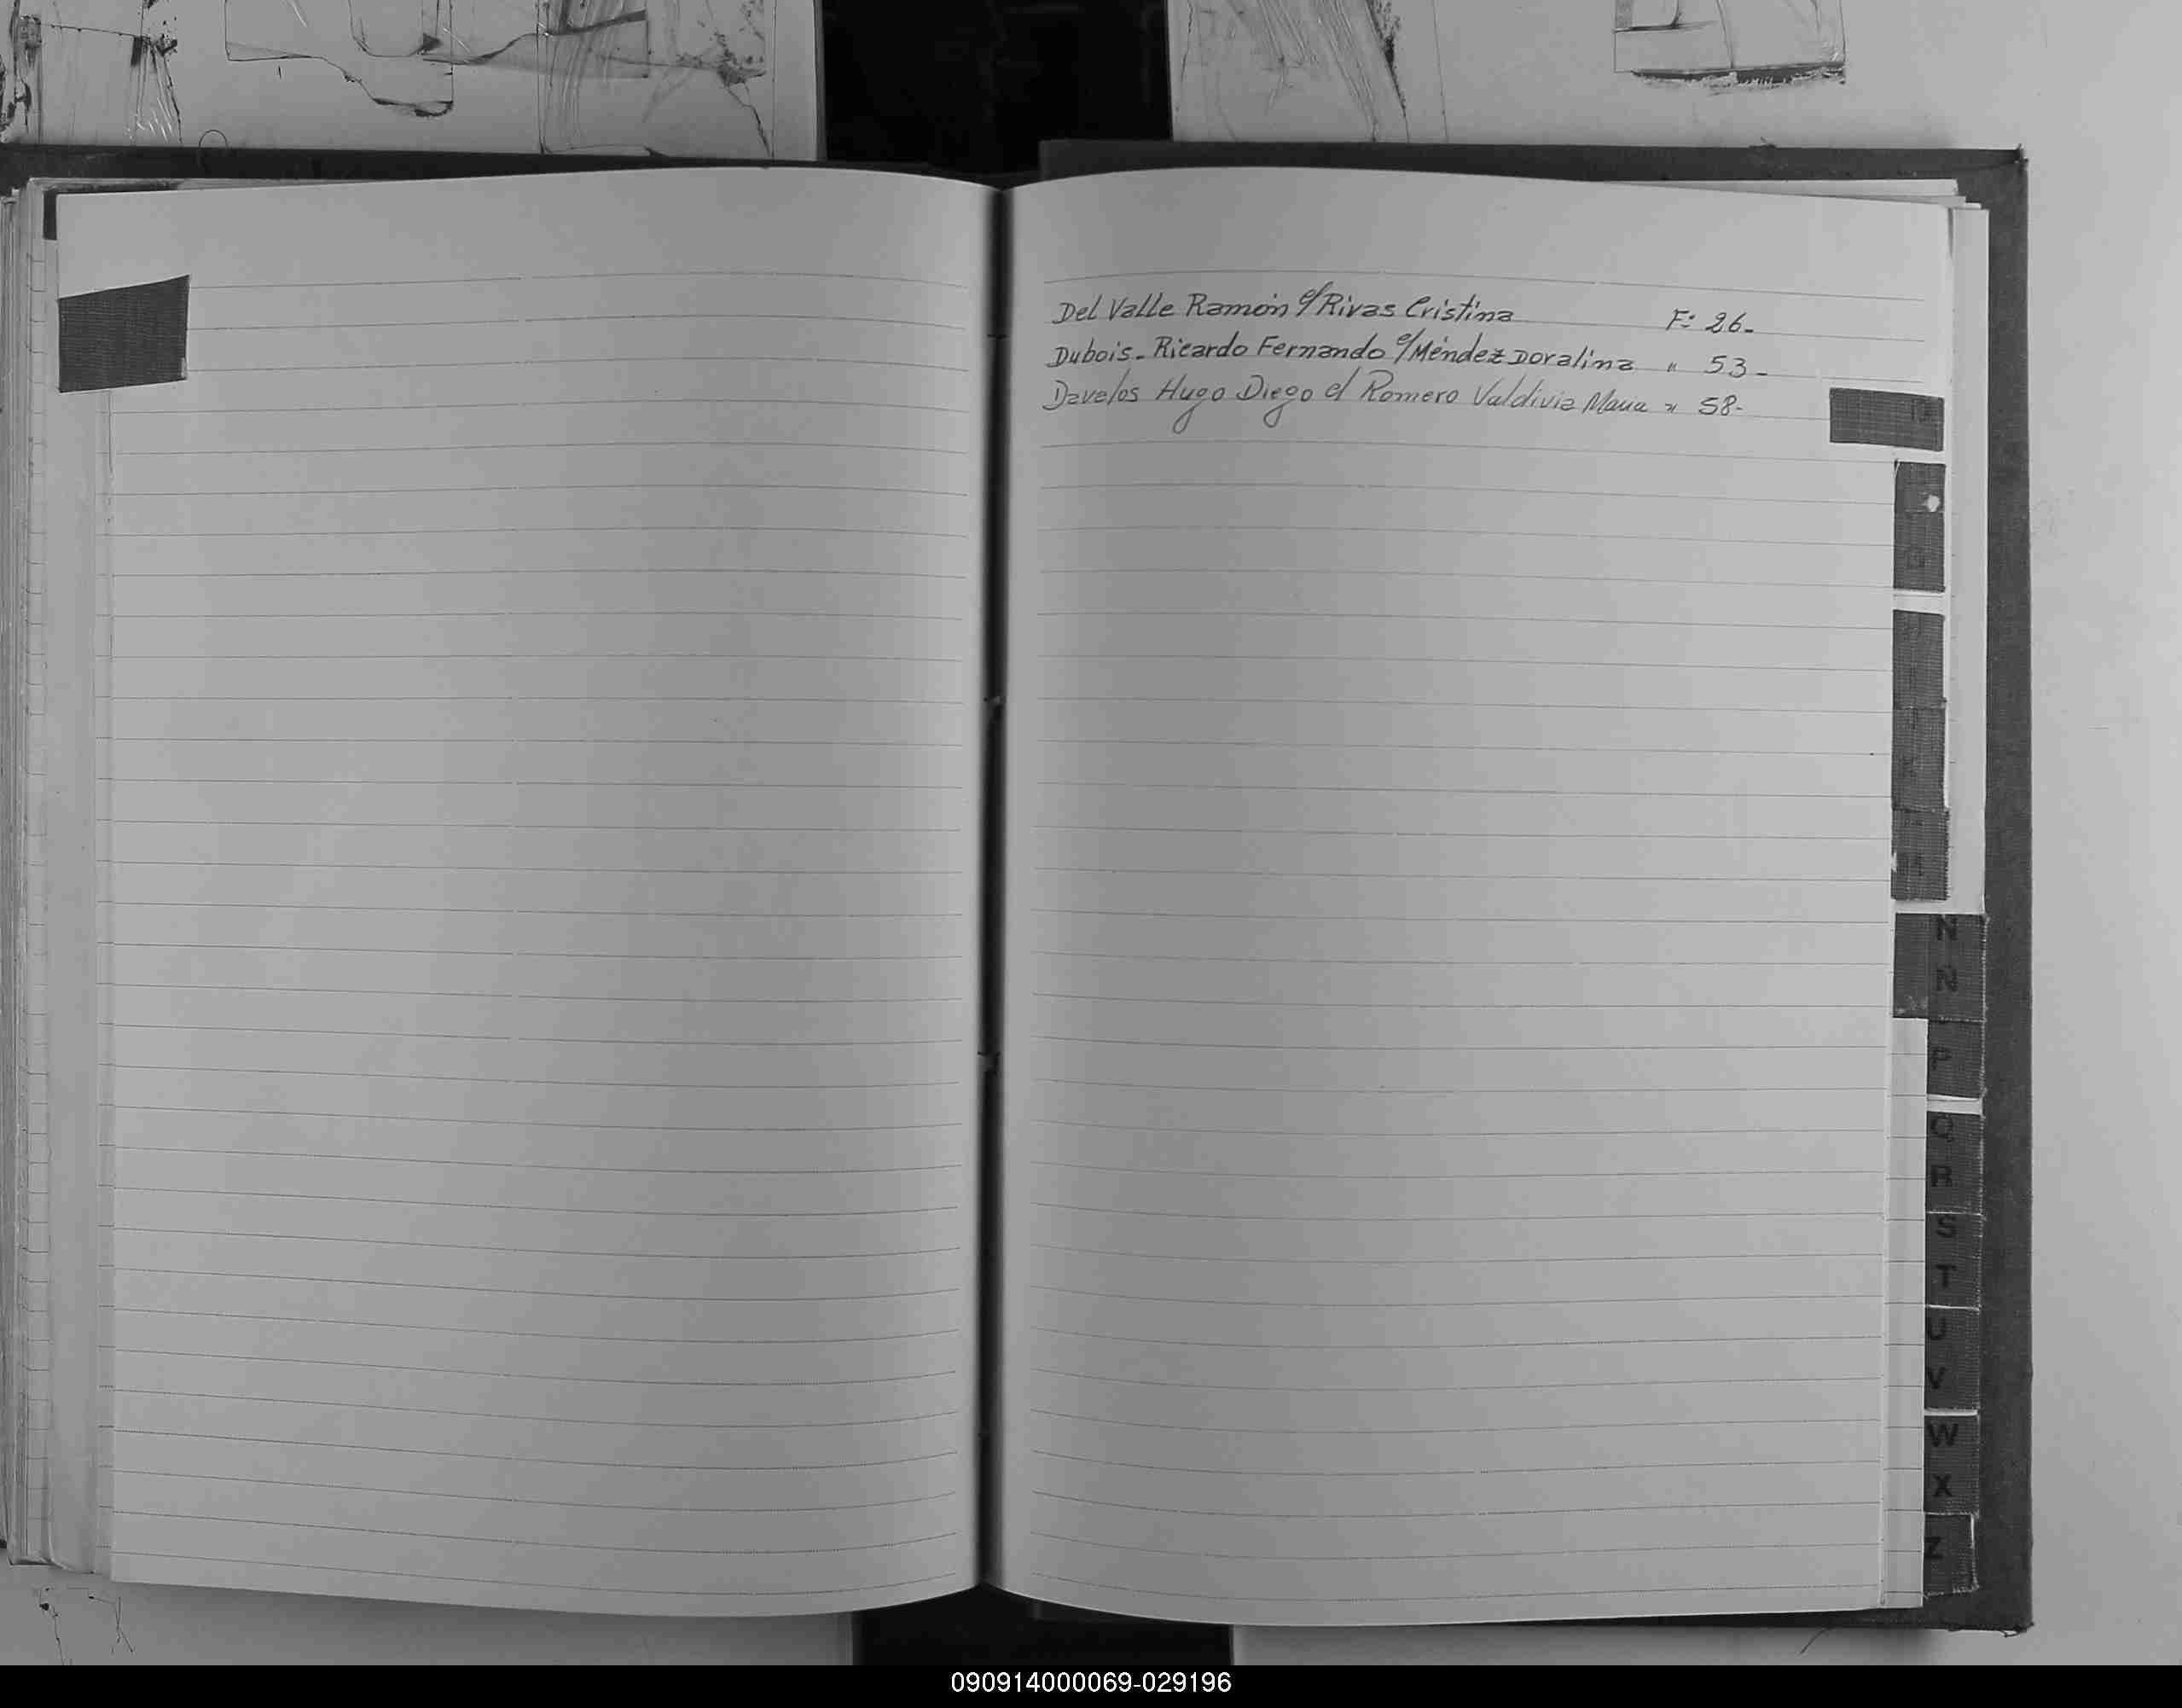 Del Valle Ramón c/ Rivas Cristina F: 26-
Dubois - Ricardo Fernando c/ Méndez Doralina " 53-
Davalos Hugo Diego c/ Romero Valdivia Maria " 58-
M
N
Ñ
P
Q
R
S
T
U
V
W
X
Z
090914000069-029196